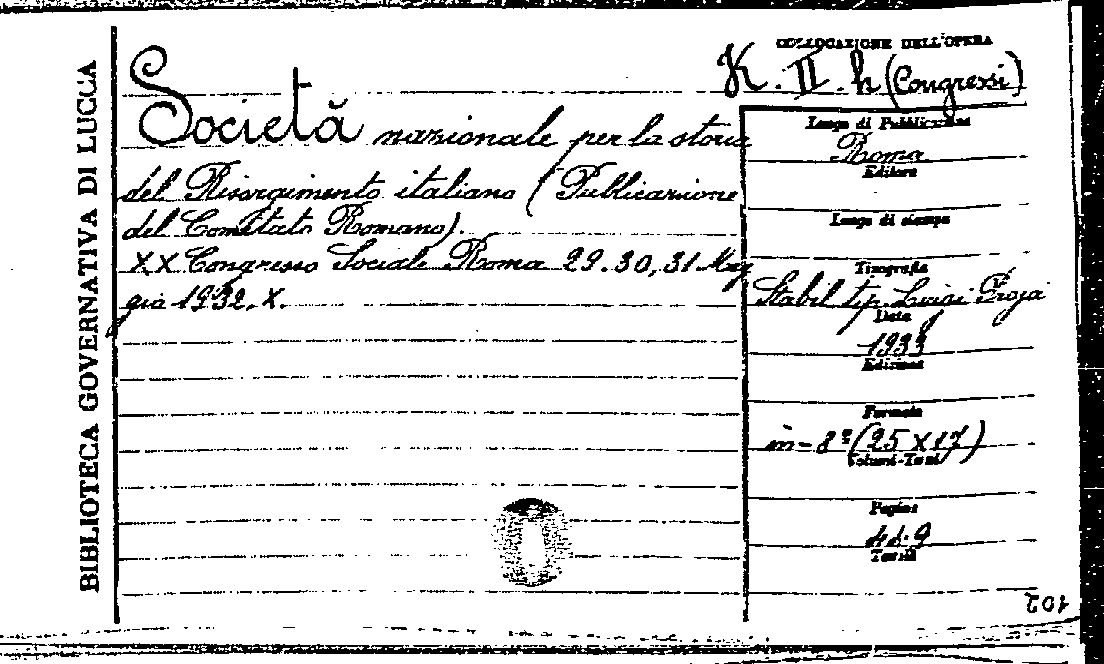 BIBLIOTECA GOVERNATIVA DI LUCCA
COLLOCAZIONE DELL'OPERA
K. II. h (Congressi)
Società nazionale per la storia
del Risorgimento italiano (Pubblicazione
del Comitato Romano).
XX Congresso Sociale Roma 29.30,31 Mag
gio 1932. X.
Luogo di Pubblicazione
Roma
Editore
Luogo di stampa
Tipografia
Stabil tip. Luigi Proja
Data
1933
Edizione
Formato
in-8º (25 X 17)
Volumi-Tomi
Pagine
Tavole
102